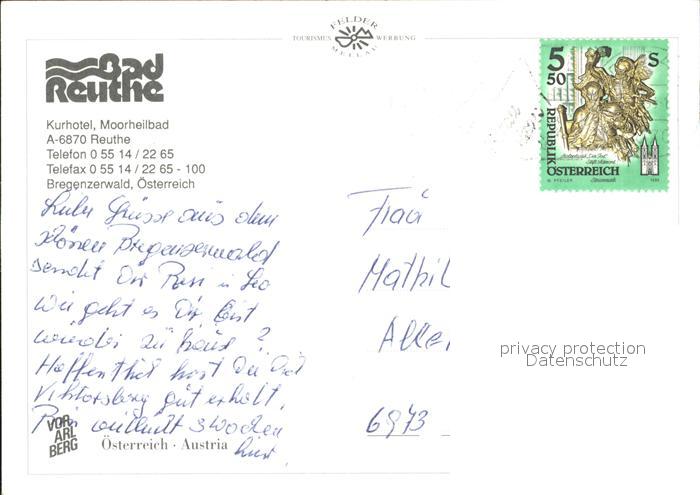 FELDER
TOURISMUS WERBUNG
MELLAU
Bad
Reuthe
Kurhotel, Moorheilbad
A-6870 Reuthe
Telefon 0 55 14 / 22 65
Telefax 0 55 14 / 22 65 - 100
Bregenzerwald, Österreich
5
50
S
REPUBLIK
ÖSTERREICH
Liebe Grüsse aus dem
schönen Bregenzerwald
sendet Dir Resi u Leo
Wie geht es Dir bist
wieder zu hause ?
Hoffentlich hast Du Dich
Viktorsberg gut erholt,
Resi 3 Wochen
hier.
Frau
Mathil
6973
privacy protection
Datenschutz
VOR
ARL
BERG
Österreich · Austria